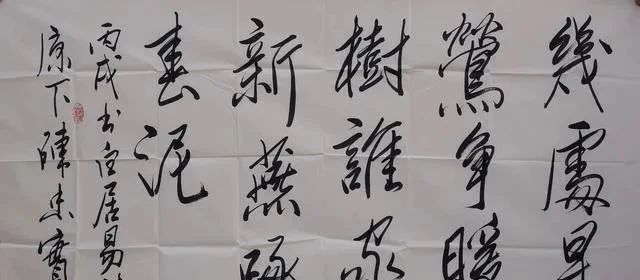 幾處早
鶯争暖
樹誰家
新燕啄
春泥
丙戌书白居易
原下陳忠實